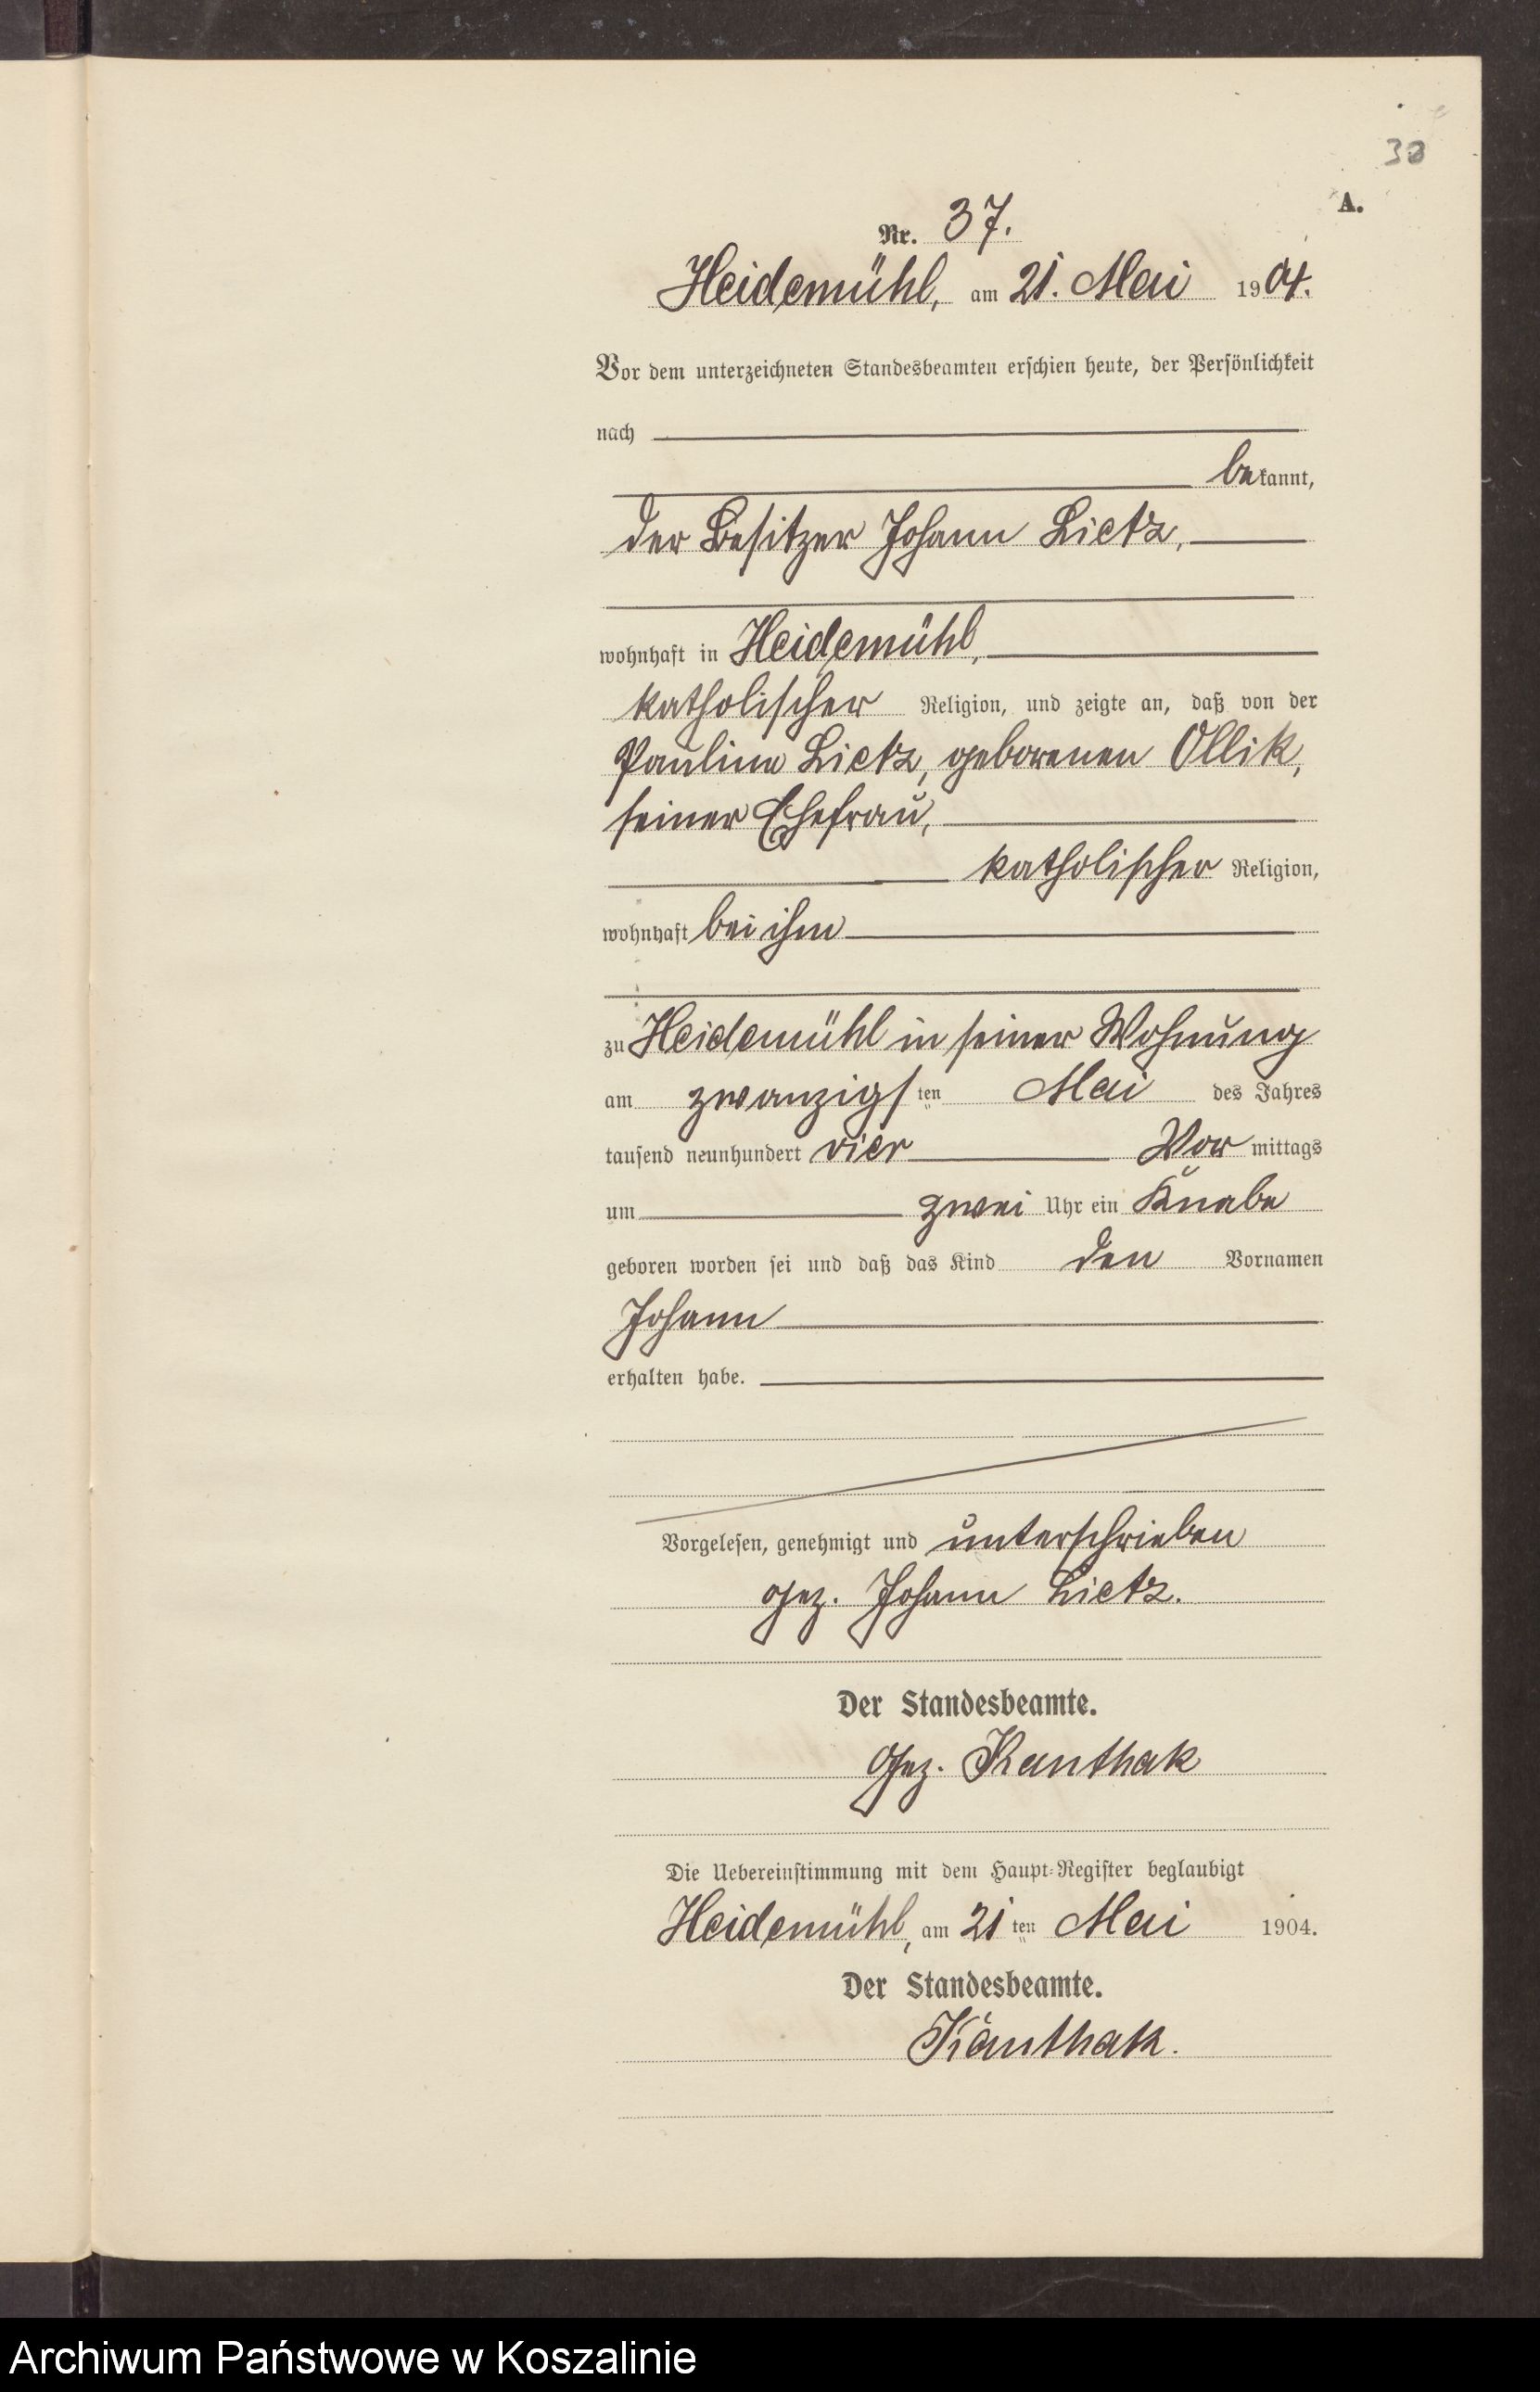 38
A.
Nr. 37.
Heidemühl, am 21. Mai 1904.
Vor dem unterzeichneten Standesbeamten erschien heute, der Persönlichkeit
nach
bekannt,
der Besitzer Johann Lietz,
wohnhaft in Heidemühl,
katholischer Religion, und zeigte an, daß von der
Pauline Lietz, geborenen Ollik,
seiner Ehefrau,
katholischer Religion,
wohnhaft bei ihm
zu Heidemühl in seiner Wohnung
am zwanzigsten Mai des Jahres
tausend neunhundert vier Vormittags
um zwei Uhr ein Knabe
geboren worden sei und daß das Kind den Vornamen
Johann
erhalten habe.
Vorgelesen, genehmigt und unterschrieben
gez. Johann Lietz.
Der Standesbeamte.
Gez. Kanthak
Die Uebereinstimmung mit dem Haupt-Register beglaubigt
Heidemühl, am 21ten Mai 1904.
Der Standesbeamte.
Kanthak.
Archiwum Państwowe w Koszalinie